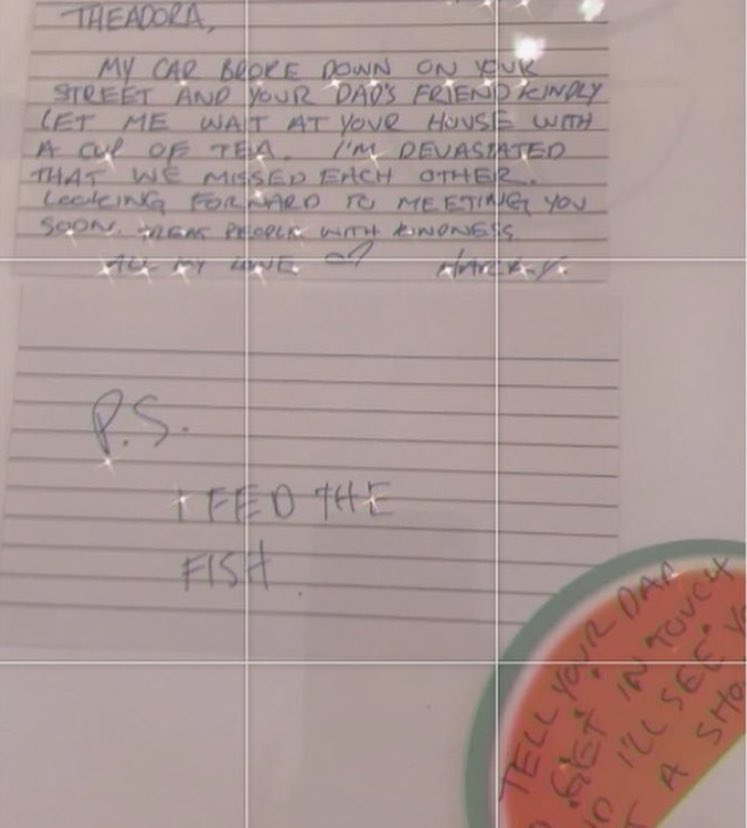 THEADORA,
MY CAR BROKE DOWN ON YOUR
STREET AND YOUR DAD'S FRIEND KINDLY
LET ME WAIT AT YOUR HOUSE WITH
A CUP OF TEA. I'M DEVASTATED
THAT WE MISSED EACH OTHER.
LOOKING FORWARD TO MEETING YOU
SOON. TREAT PEOPLE WITH KINDNESS
ALL MY LOVE ♡ HARRY.
P.S.
I FED THE
FISH.
TELL YOUR DAD
GET IN TOUCH
I'LL SEE
A